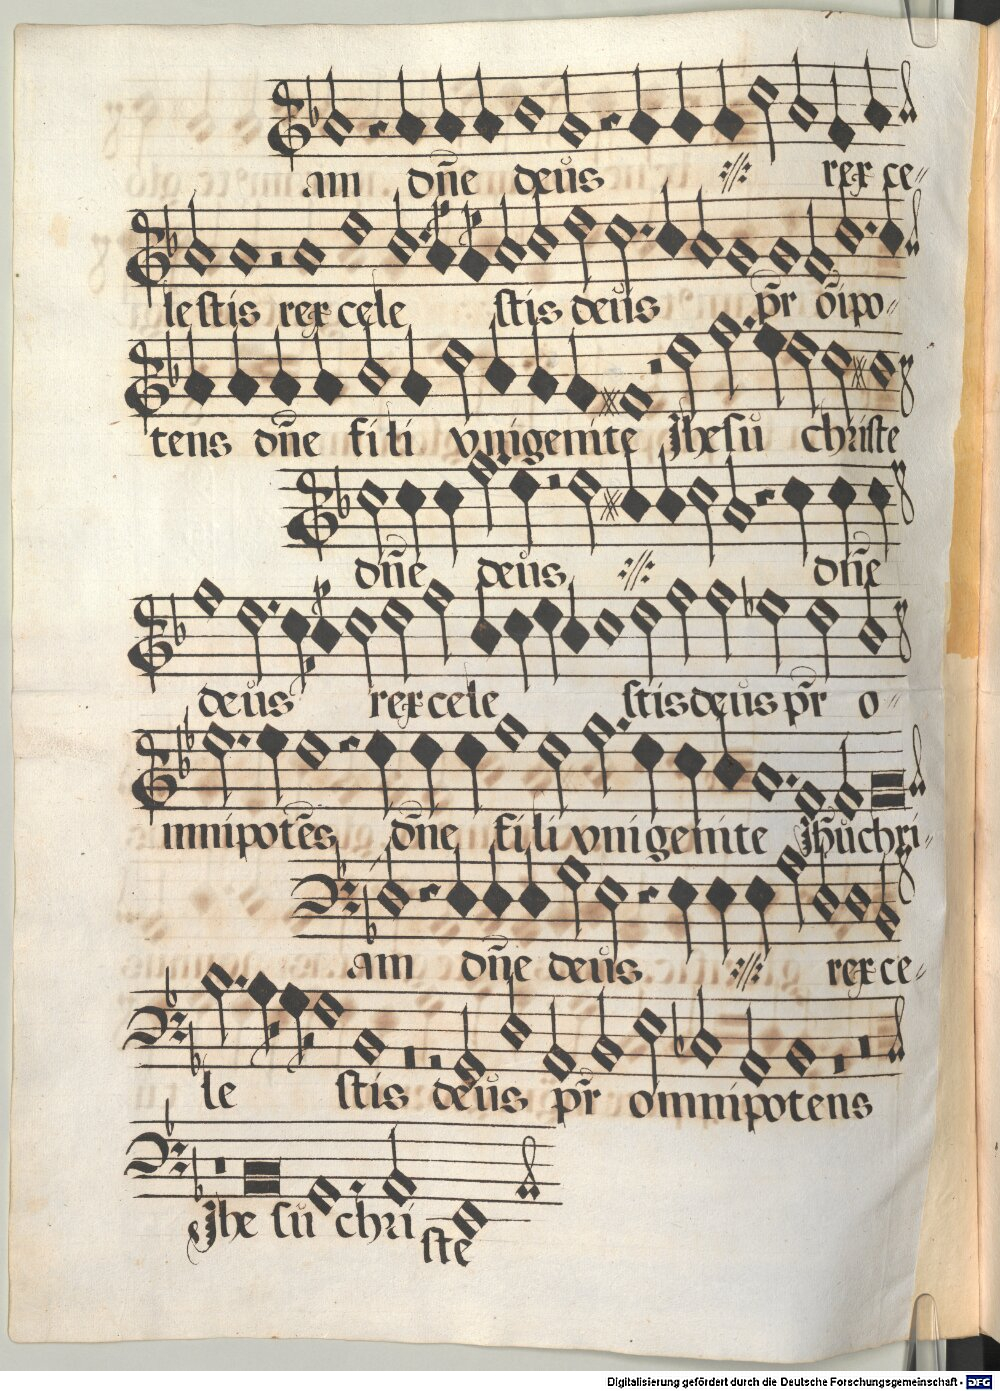 am dn̄e deus ·//· rex ce⸗
lestis rex cele stis deus pr̄ o̅ipo⸗
tens dn̄e fili vnigenite Jhesu christe
dn̄e deus ·//· dn̄e
deus rex cele stis deus pr̄ o⸗
mnipotēs dn̄e fili vnigenite Jh̄u chri⸗
am dn̄e deus ·//· rex ce⸗
le stis deus pr̄ omnipotens
Jhe su chri ste
Digitalisierung gefördert durch die Deutsche Forschungsgemeinschaft - DFG